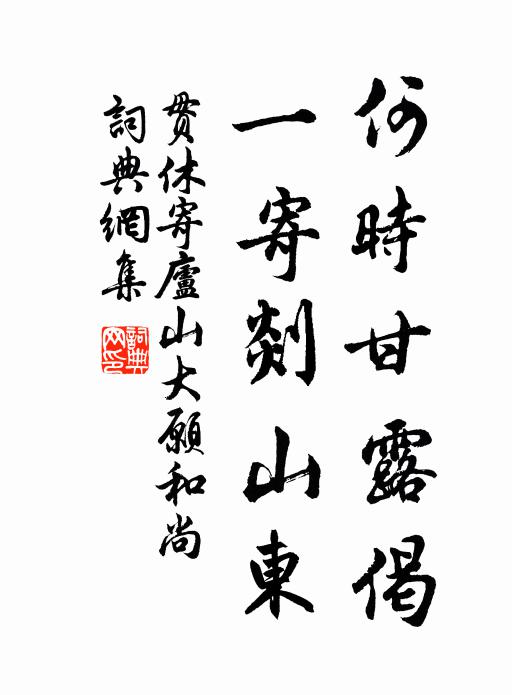 何時甘露偈
一寄剡山東
貫休寄廬山大願和尚
詞典網集
詞典網印